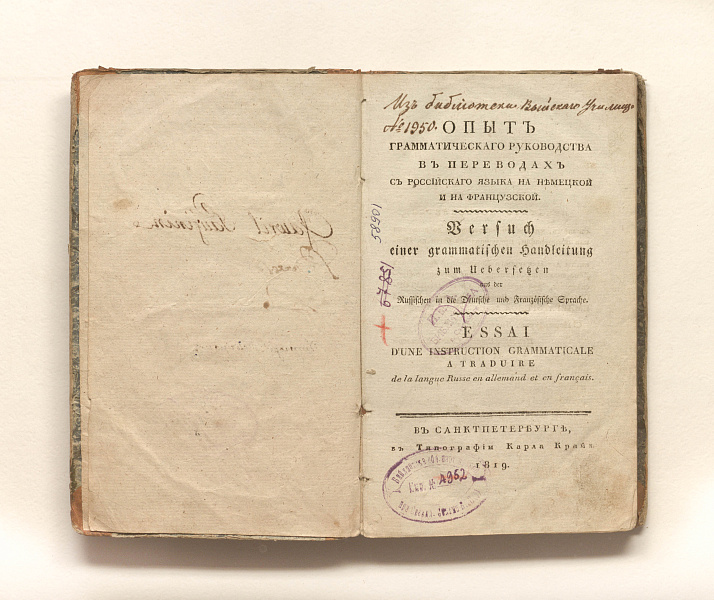 Изъ библіотеки Выйскаго Училищ
№ 1950.
ОПЫТЪ
ГРАММАТИЧЕСКАГО РУКОВОДСТВА
ВЪ ПЕРЕВОДАХЪ
СЪ РОССІЙСКАГО ЯЗЫКА НА НѢМЕЦКОЙ
И НА ФРАНЦУЗСКОЙ.
Versuch
einer grammatischen Handleitung
zum Uebersetzen
aus der
Russischen in die Deutsche und Französische Sprache.
ESSAI
D'UNE INSTRUCTION GRAMMATICALE
A TRADUIRE
de la langue Russe en allemand et en français.
ВЪ САНКТПЕТЕРБУРГѢ,
въ Типографіи Карла Крайя
1819.
58901
57851
Инв. № 4952